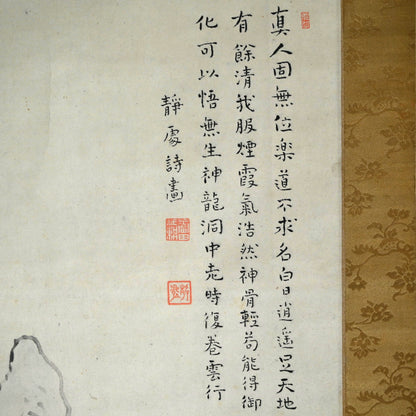 真人固無位楽道不求名白日逍遥足天地
有餘清我服煙霞氣浩然神骨輕苟能得御
化可以悟無生神龍洞中走時復巻雲行
靜處詩畫